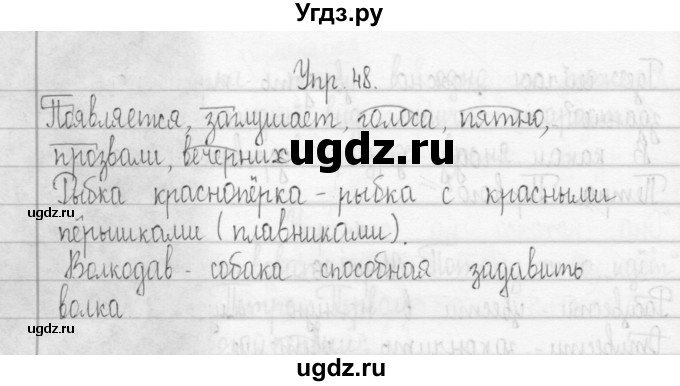 Угдз.ру
Упр. 48.
Появляется, заглушает, голоса, пятно,
прозвали, вечерних
ugdz.ru
Рыбка краснопёрка - рыбка с красными
ugdz.ru
ugdz.ru
пёрышками (плавниками).
Волкодав - собака способная задавить
волка
ugdz.ru
ugdz.ru